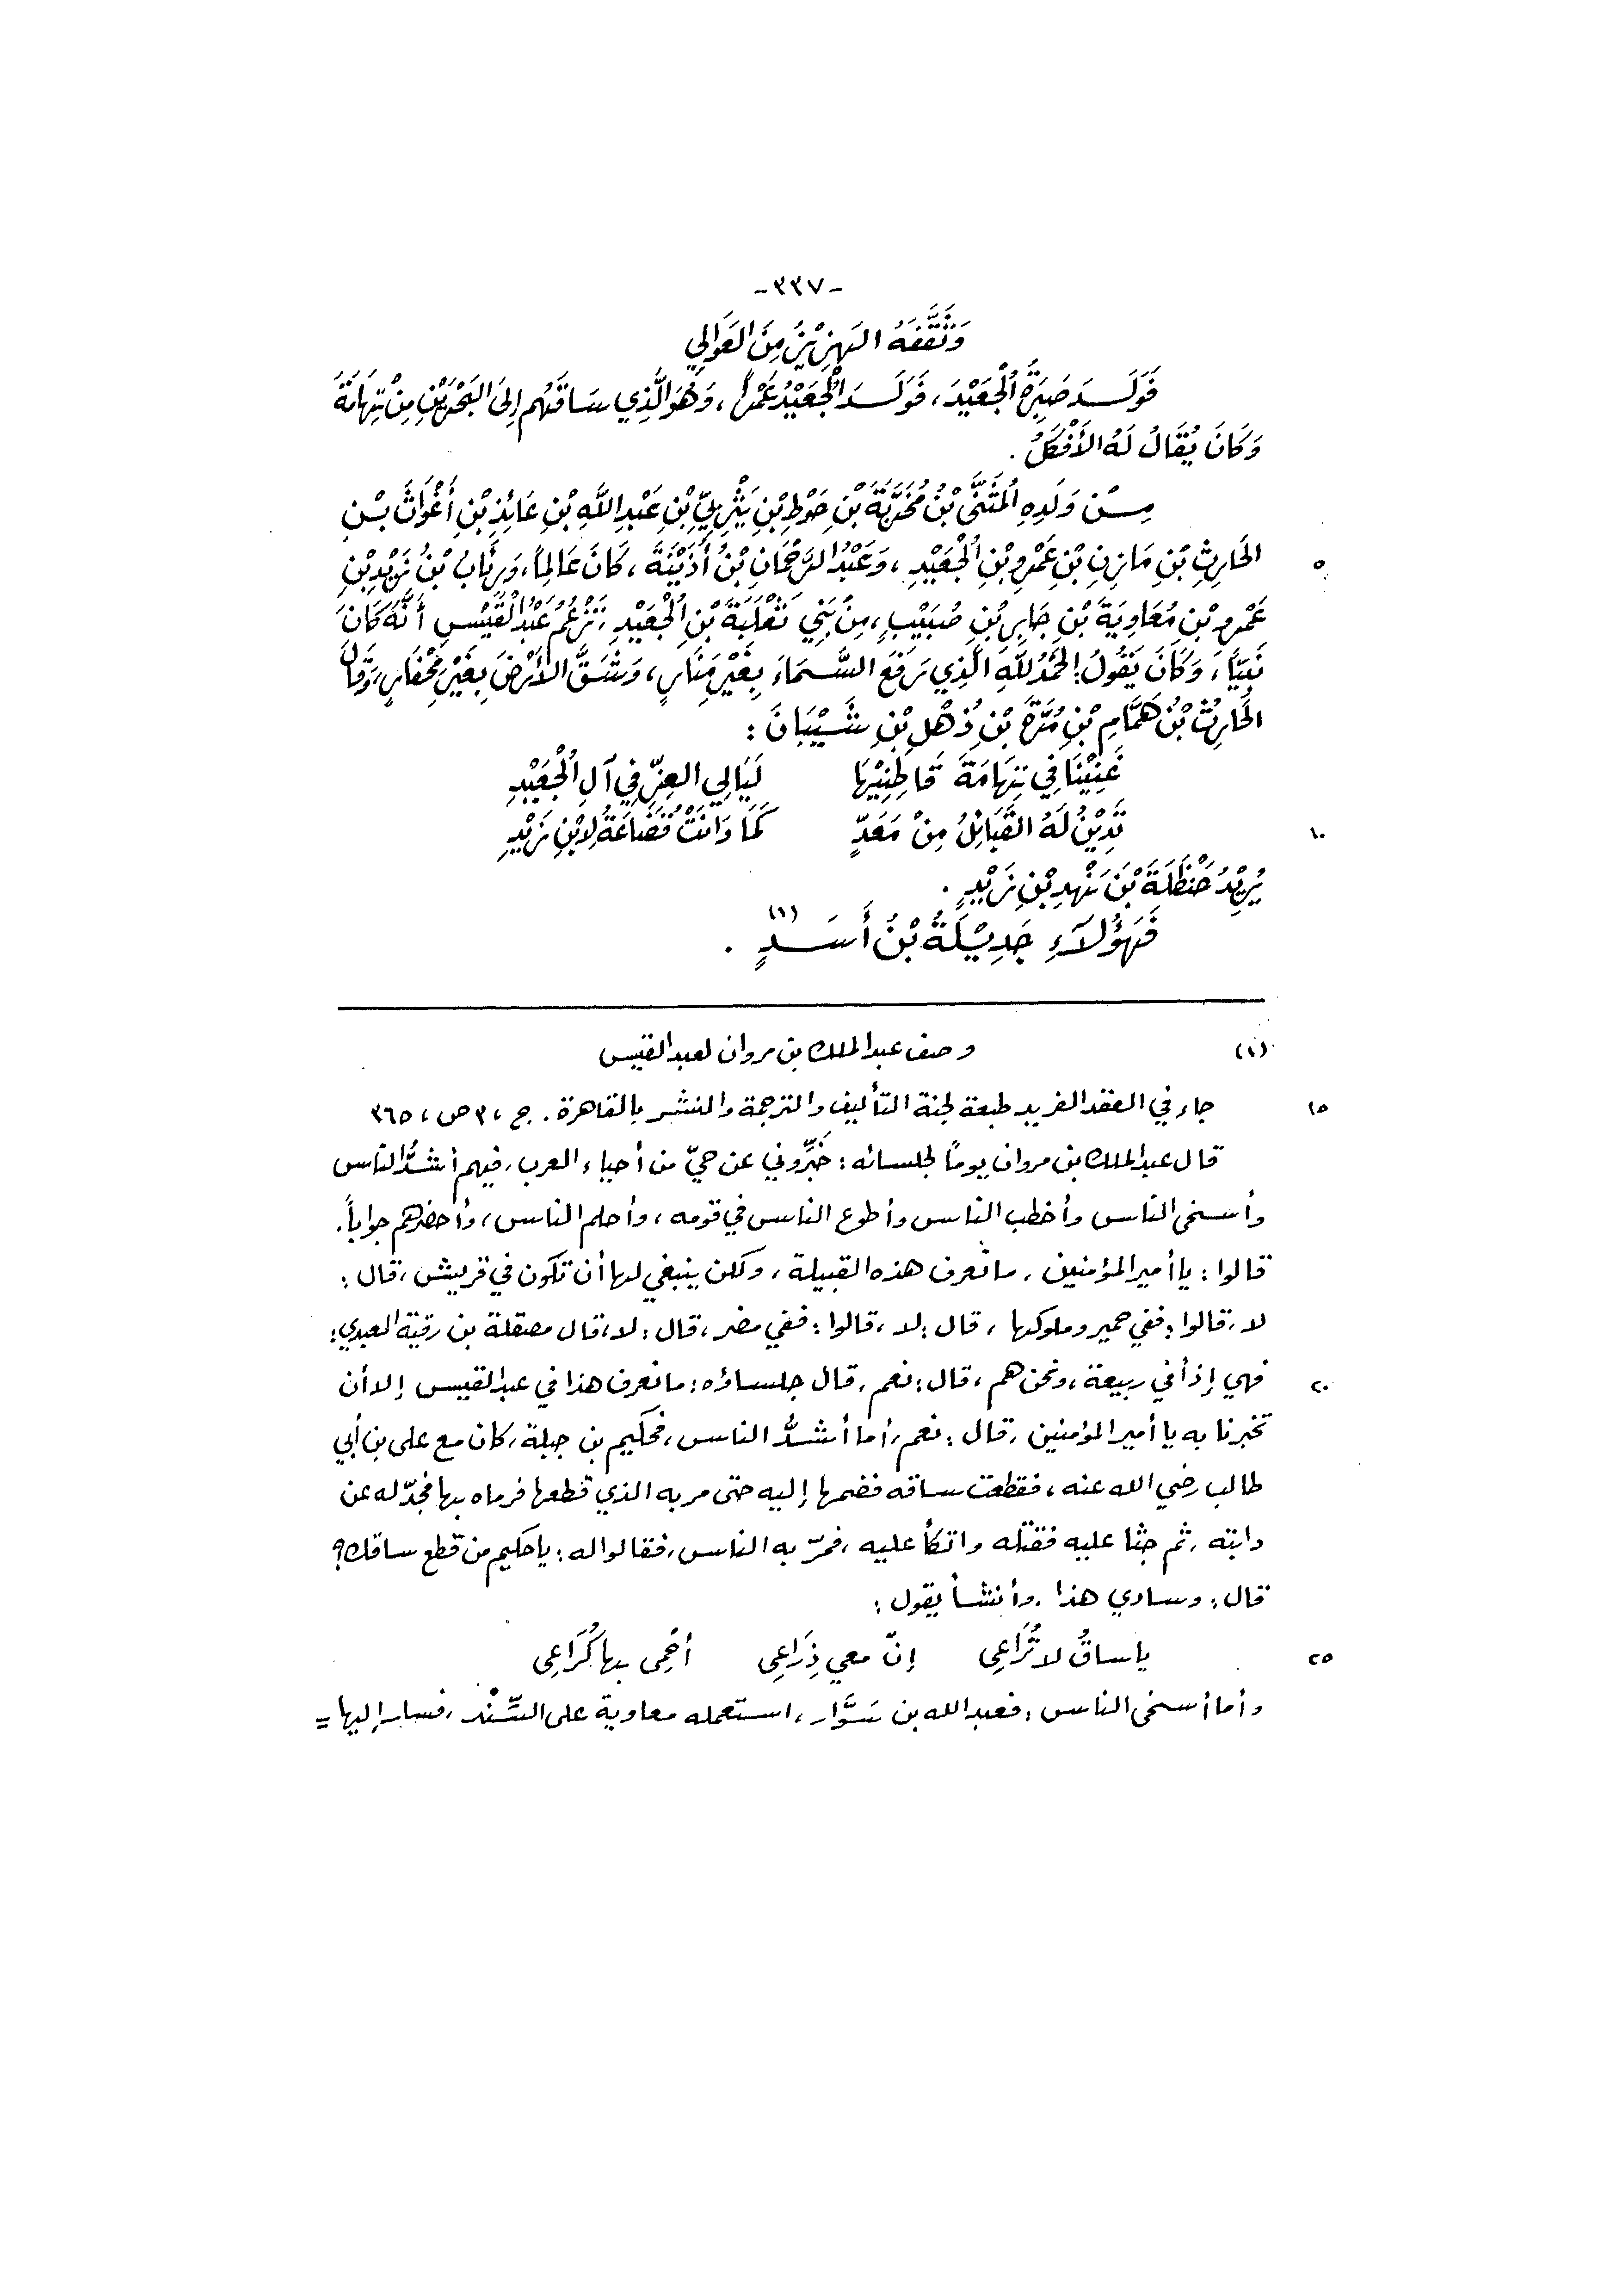 -٣٣٧-
وَثَقَّفَهُ الهَزِيْزُ مِنَ العَوَالِي
فَوَلَدَ صَبِرَةُ الجُعَيْدَ، فَوَلَدَ الجُعَيْدُ عَمْراً، وَهُوَ الَّذِي سَاقَهُم إِلَى البَحْرَيْنِ مِنْ تِهَامَةَ
وَكَانَ يُقَالُ لَهُ الأَفْكَلُ.
مِنْ وَلَدِهِ المُثَنَّى بْنُ مُخَرِّبَةَ بْنِ حَوْطِ بْنِ يَثْرِبِيِّ بْنِ عَبْدِ اللَّهِ بْنِ عَائِذِ بْنِ أَغْوَاثَ بْنِ
الحَارِثِ بْنِ مَازِنِ بْنِ عَمْرِو بْنِ الجُعَيْدِ، وَعَبْدُ الرَّحْمَانِ بْنُ أُذَيْنَةَ، كَانَ عَالِماً، وَرِئَابُ بْنُ زَيْدِ بْنِ
٥
عَمْرِو بْنِ مُعَاوِيَةَ بْنِ جَابِرِ بْنِ صُبَيْبٍ، مِنْ بَنِي ثَعْلَبَةَ بْنِ الجُعَيْدِ، تَزْعُمُ عَبْدُ القَيْسِ أَنَّهُ كَانَ
نَبِيّاً، وَكَانَ يَقُولُ: الحَمْدُ للَّهِ الَّذِي رَفَعَ السَّمَاءَ بِغَيْرِ مَنَارٍ، وَشَقَّ الأَرْضَ بِغَيْرِ مِحْفَارٍ، وَقَالَ
الحَارِثُ بْنُ هَمَّامِ بْنِ مُرَّةَ بْنِ ذُهْلِ بْنِ شَيْبَانَ:
غَنِيْنَا فِي تِهَامَةَ قَاطِنِيْهَا لَيَالِي العِزِّ فِي آلِ الجُعَيْدِ
تَدِيْنُ لَهُ القَبَائِلُ مِنْ مَعَدٍّ كَمَا دَانَتْ قُضَاعَةُ لِابْنِ زَيْدِ
١٠
يُرِيْدُ حَنْظَلَةَ بْنَ نَهْدِ بْنِ زَيْدٍ.
فَهَؤُلَاءِ جَدِيْلَةُ بْنُ أَسَدٍ (١).
(١) وصف عبد الملك بن مروان لعبد القيس
جاء في العقد الفريد طبعة لجنة التأليف والترجمة والنشر بالقاهرة. ج ٣، ص، ٣٦٥
١٥
قال عبد الملك بن مروان يوماً لجلسائه: خَبِّروني عن حيّ من أحياء العرب، فيهم أشدُّ الناس
وأسخى الناس وأخطب الناس وأطوع الناس في قومه، وأحلم الناس، وأحضرهم جواباً.
قالوا: يا أمير المؤمنين، ما نعرف هذه القبيلة، ولكن ينبغي لها أن تكون في قريش، قال:
لا، قالوا: ففي حمير وملوكها، قال: لا، قالوا: ففي مضر، قال: لا، قال مصقلة بن رقية العبدي:
فهي إذاً في ربيعة، ونحن هم، قال: نعم، قال جلساؤه: ما نعرف هذا في عبد القيس إلا أن
٢٠
تخبرنا به يا أمير المؤمنين، قال: نعم، أما أشدُّ الناس، فحكيم بن جبلة، كان مع علي بن أبي
طالب رضي الله عنه، فقطعت ساقه فضمها إليه حتى مر به الذي قطعها فرماه بها فجدّله عن
دابته، ثم جثا عليه فقتله واتكأ عليه، فمرّ به الناس، فقالوا له: يا حكيم من قطع ساقك؟
قال: وسادي هذا، وأنشأ يقول:
يا ساقُ لا تُرَاعِى إنّ معي ذِرَاعِى أحْمِى بها كُرَاعِى
٢٥
وأما أسخى الناس: فعبد الله بن سَوَّار، استعمله معاوية على السِّنْد، فسار إليها =